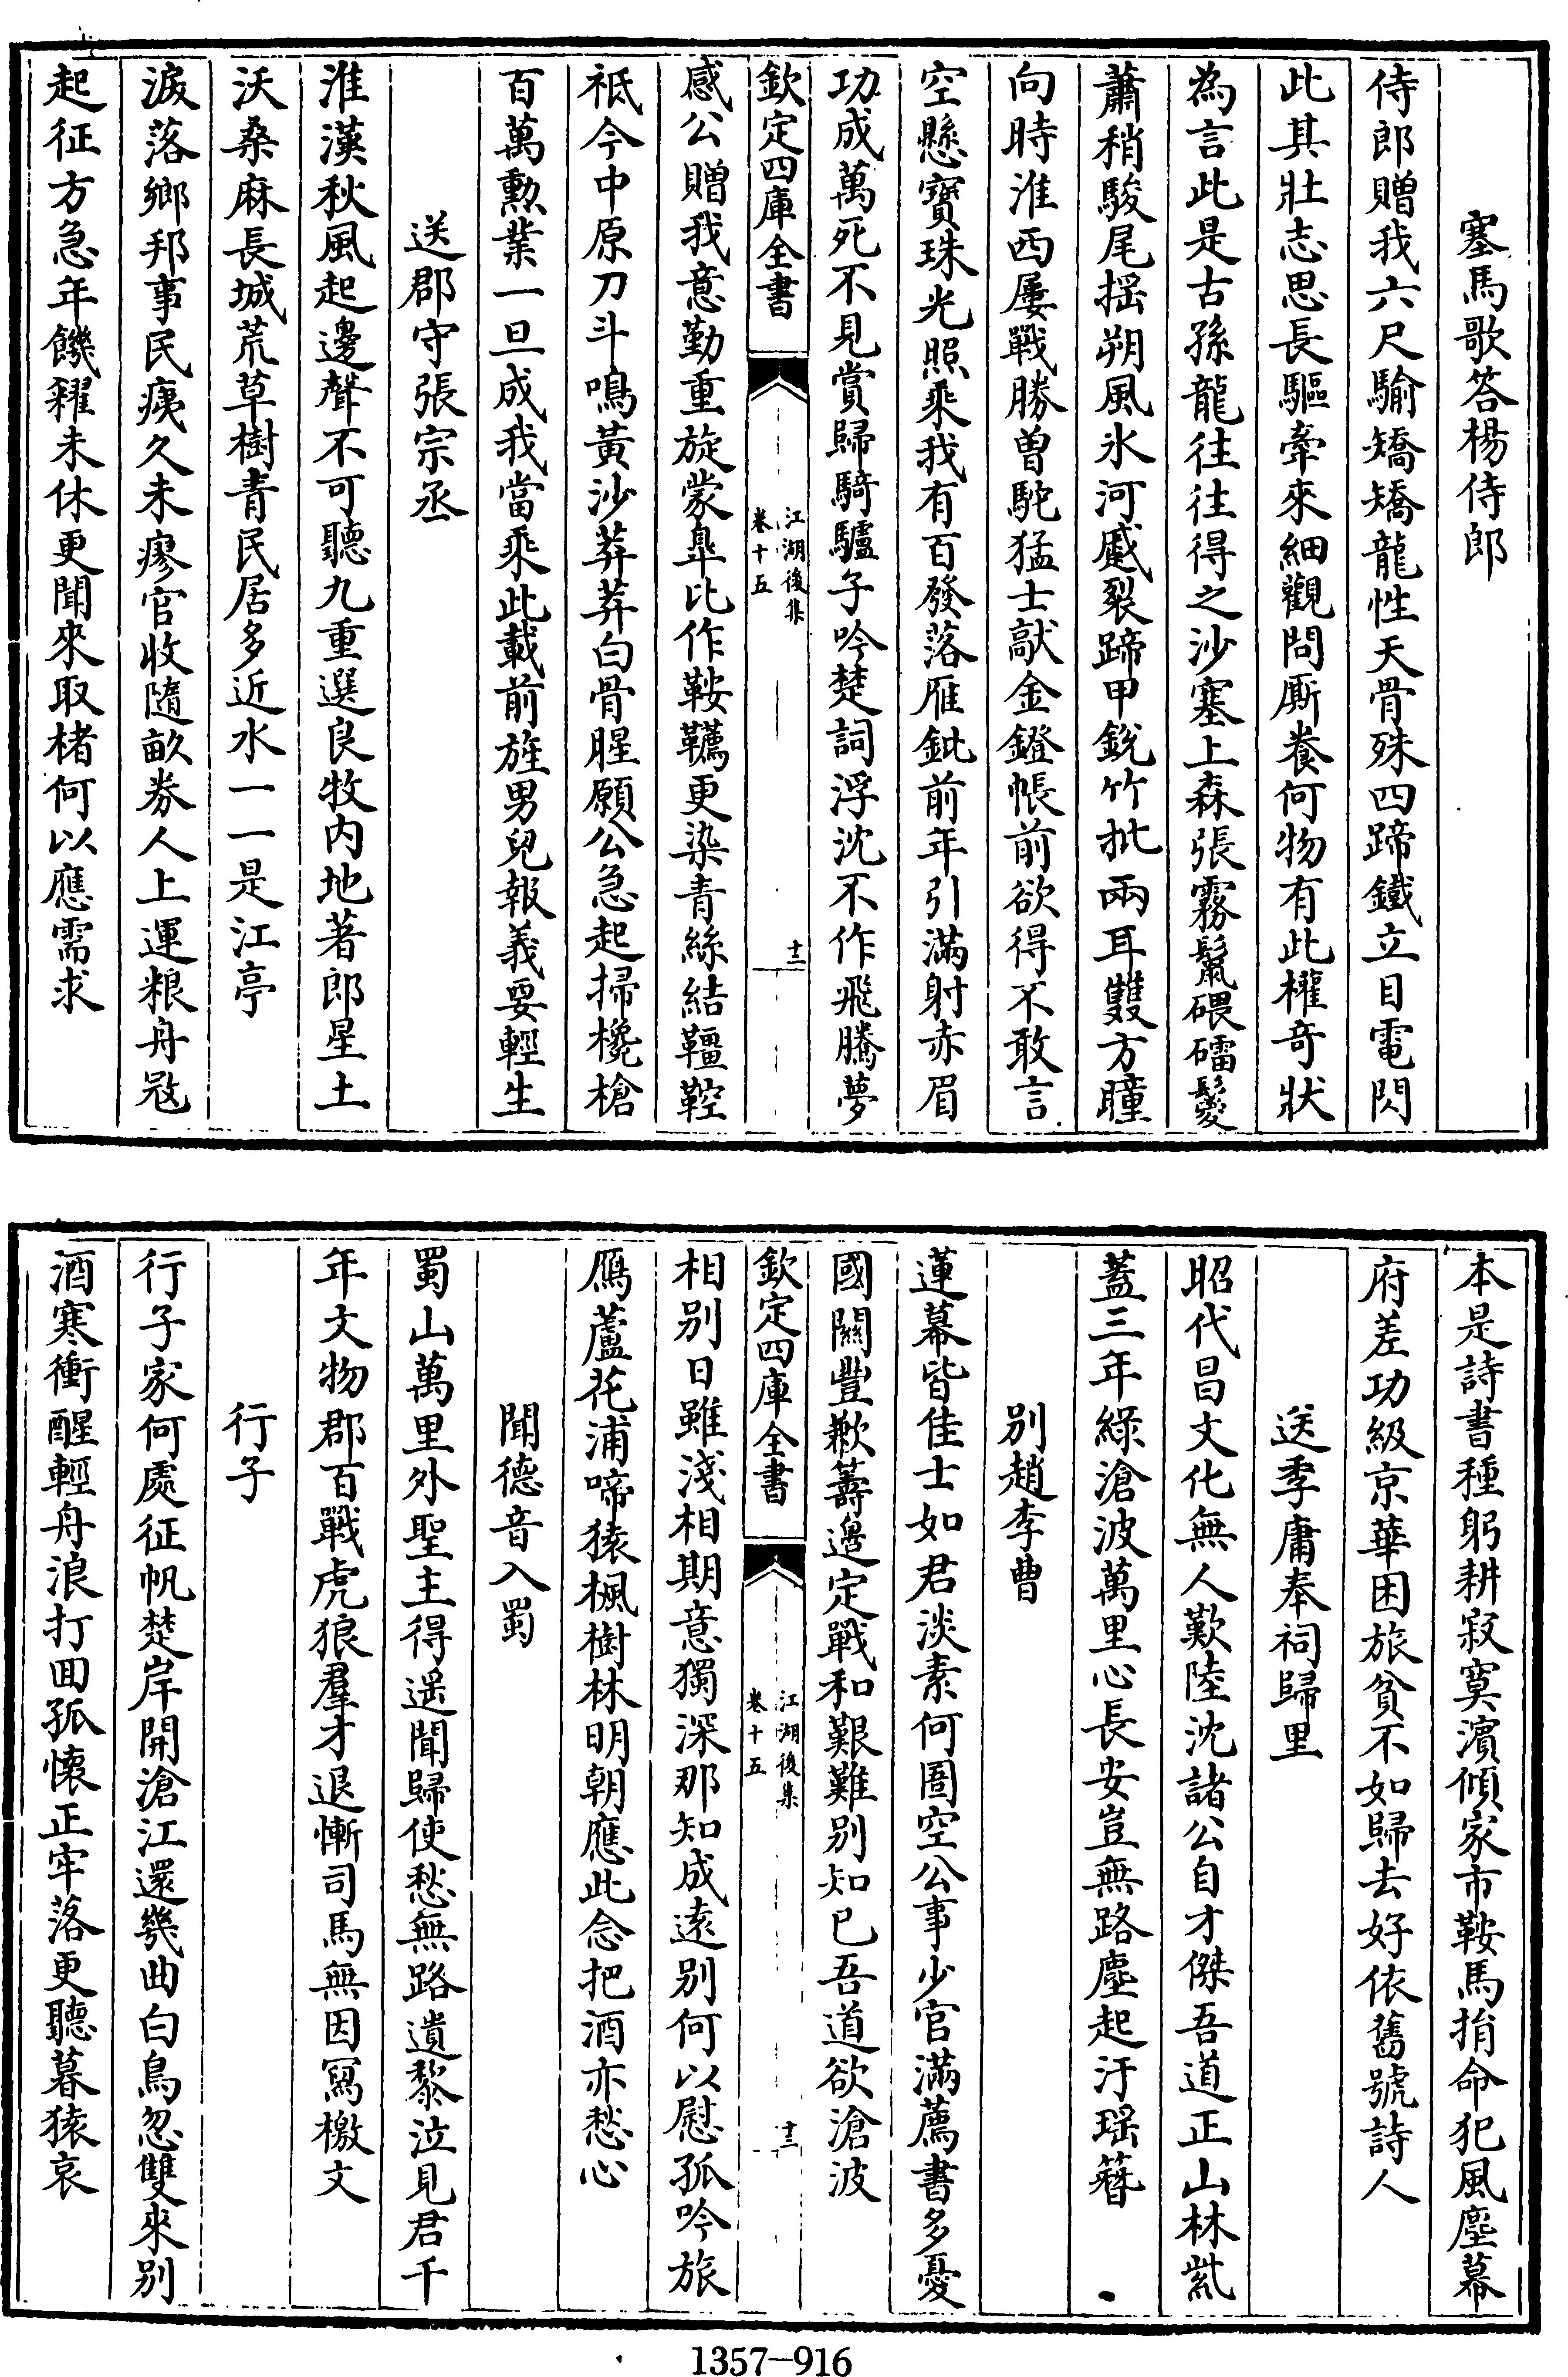 塞馬歌答楊侍郎
侍郎贈我六尺騟矯矯龍性天骨殊四蹄鐵立目電閃
此其壯志思長驅牽來細觀問厮養何物有此權奇狀
為言此是古孫龍往往得之沙塞上森張霧鬣碨礌鬉
蕭稍駿尾揺朔風氷河蹙裂蹄甲鋭竹批兩耳雙方瞳
向時淮西屢戰勝曽駞猛士獻金鐙帳前欲得不敢言
空懸寳珠光照乘我有百發落雁鈚前年引滿射赤眉
功成萬死不見賞歸騎驢子吟楚詞浮沈不作飛騰夢
欽定四庫全書
江湖後集
卷十五
十二
感公贈我意勤重旋蒙臯比作鞍韉更染青絲結韁鞚
祗今中原刀斗鳴黃沙莽莽白骨腥願公急起掃欃槍
百萬勲業一旦成我當乘此載前旌男兒報義要輕生
送郡守張宗丞
淮漢秋風起邊聲不可聽九重選良牧内地著郎星土
沃桑麻長城荒草樹青民居多近水一一是江亭
淚落鄉邦事民痍久未瘳官收隨畝劵人上運粮舟冦
起征方急年饑糴未休更聞來取楮何以應需求
本是詩書種躬耕寂寞濱傾家市鞍馬捐命犯風塵幕
府差功級京華困旅貧不如歸去好依舊號詩人
送季庸奉祠歸里
昭代昌文化無人歎陸沈諸公自才傑吾道正山林紫
蓋三年綠滄波萬里心長安豈無路塵起汙瑶簪
別趙李曹
蓮幕皆佳士如君淡素何圄空公事少官滿薦書多憂
國闗豐歉籌邊定戰和艱難別知已吾道欲滄波
欽定四庫全書
江湖後集
卷十五
十三
相別日雖淺相期意獨深那知成逺別何以慰孤吟旅
鴈蘆花浦啼猿楓樹林明朝應此念把酒亦愁心
聞德音入蜀
蜀山萬里外聖主得遥聞歸使愁無路遺黎泣見君千
年文物郡百戰虎狼羣才退慚司馬無因冩檄文
行子
行子家何處征帆楚岸開滄江還幾曲白鳥忽雙來別
酒寒衝醒輕舟浪打囬孤懐正牢落更聽暮猿哀
1357-916